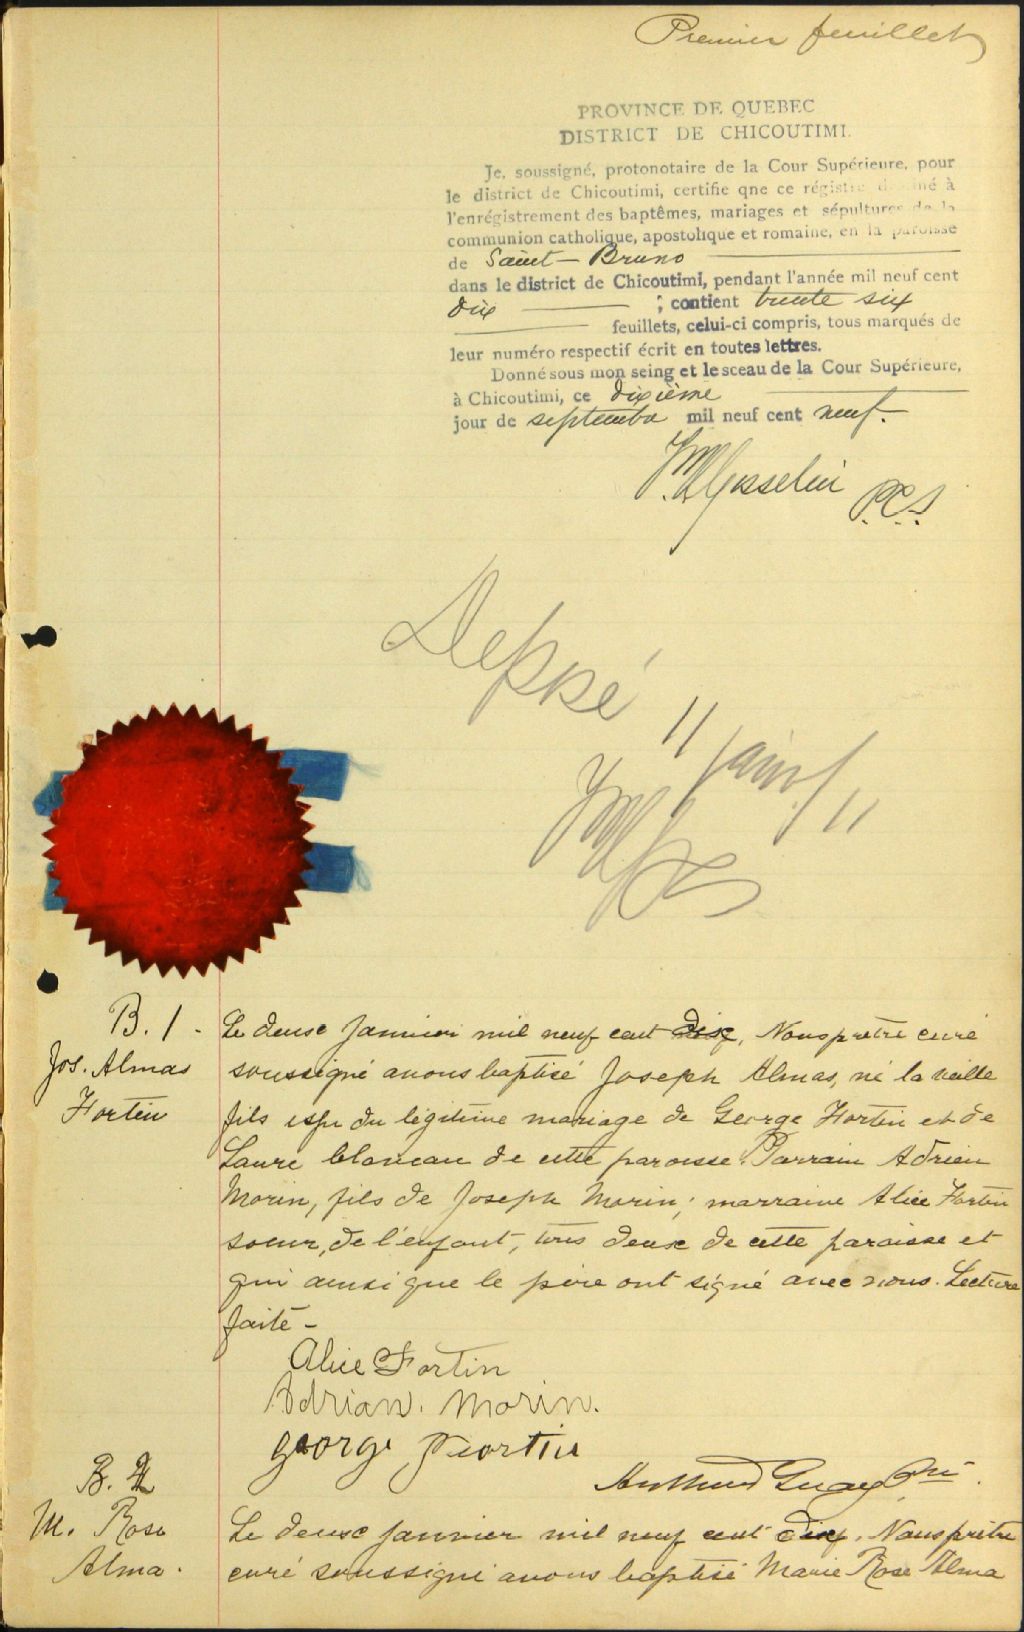 Premier feuillet
PROVINCE DE QUEBEC
DISTRICT DE CHICOUTIMI.
Je, soussigné, protonotaire de la Cour Supérieure, pour
le district de Chicoutimi, certifie qne ce régistre destiné à
l'enrégistrement des baptêmes, mariages et sépultures de la
communion catholique, apostolique et romaine, en la paroisse
de Saint-Bruno
dans le district de Chicoutimi, pendant l'année mil neuf cent
dix ; contient trente six
feuillets, celui-ci compris, tous marqués de
leur numéro respectif écrit en toutes lettres.
Donné sous mon seing et le sceau de la Cour Supérieure,
à Chicoutimi, ce dixième
jour de septembre mil neuf cent neuf.
Gosselin P.C.S.
Deposé
11 janv/11
B. 1.
Jos. Almas
Fortin
Le deuxe Janvier mil neuf cent dix, Nous prêtre curé
soussigné avons baptisé Joseph Almas, né la veille
fils issu du légitime mariage de George Fortin et de
Laure Blancau de cette paroisse. Parrain Adrien
Morin, fils de Joseph Morin; marraine Alice Fortin
soeur, de l'enfant, tous deux de cette paroisse et
qui ainsi que le père ont signé avec nous. Lecture
faite -
Alice Fortin
Adrian. Morin.
george Fortin
Arthur Guay Ptre.
B. 2
M. Rose
Alma.
Le deuxe Janvier mil neuf cent dix. Nous prêtre
curé soussigné avons baptisé Marie Rose Alma